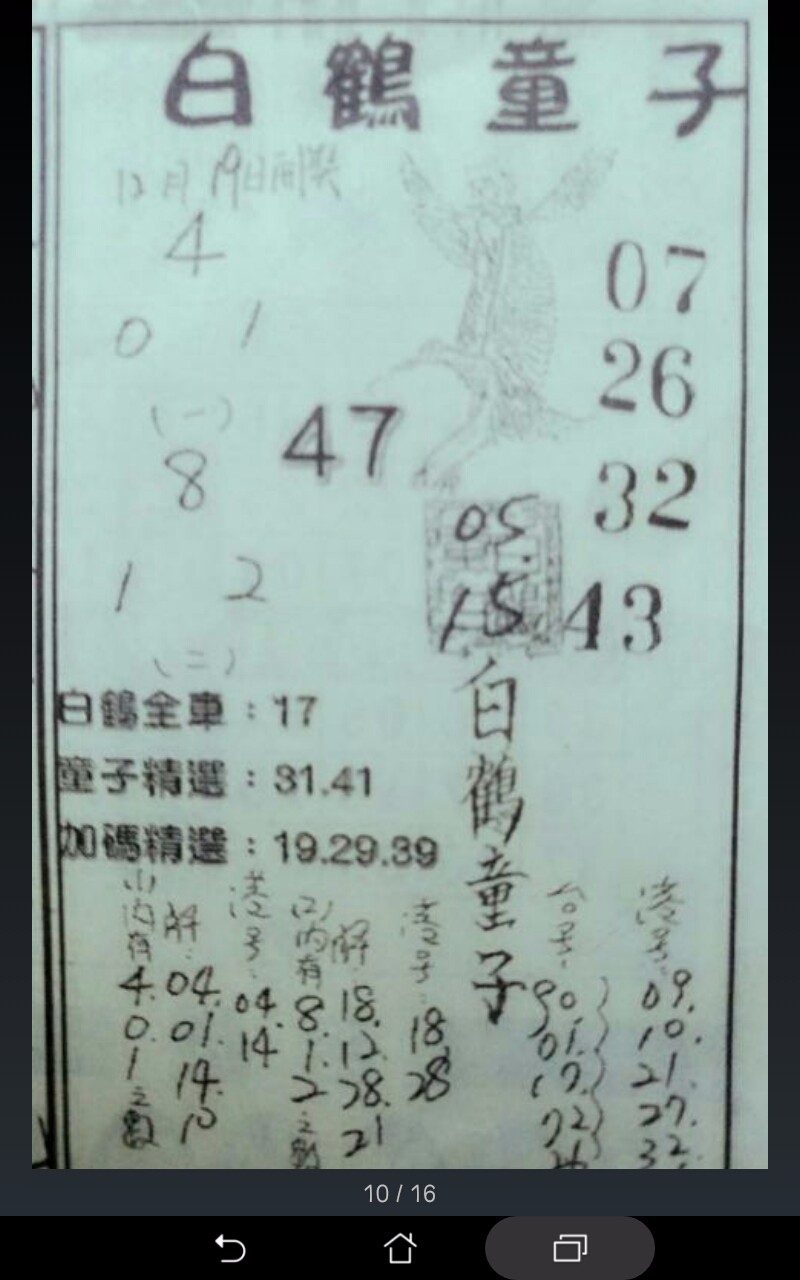 白鶴童子
12月19日開獎
4
0 1
(一)
8
1 2
(二)
47
07
26
32
43
05.
15.
白鶴全車：17
童子精選：31.41
加碼精選：19.29.39
白鶴童子
(1)內有
4.
0.
1
之數
解：
04.
01.
14.
10
港号：
04.
14
(2)內有
8.
1.
2
之數
解：
18.
12.
28.
21
港号：
18.
28
台号：
90.)
01.)
17.)
72)
港号：
09.
10.
21.
27.
32.
10 / 16